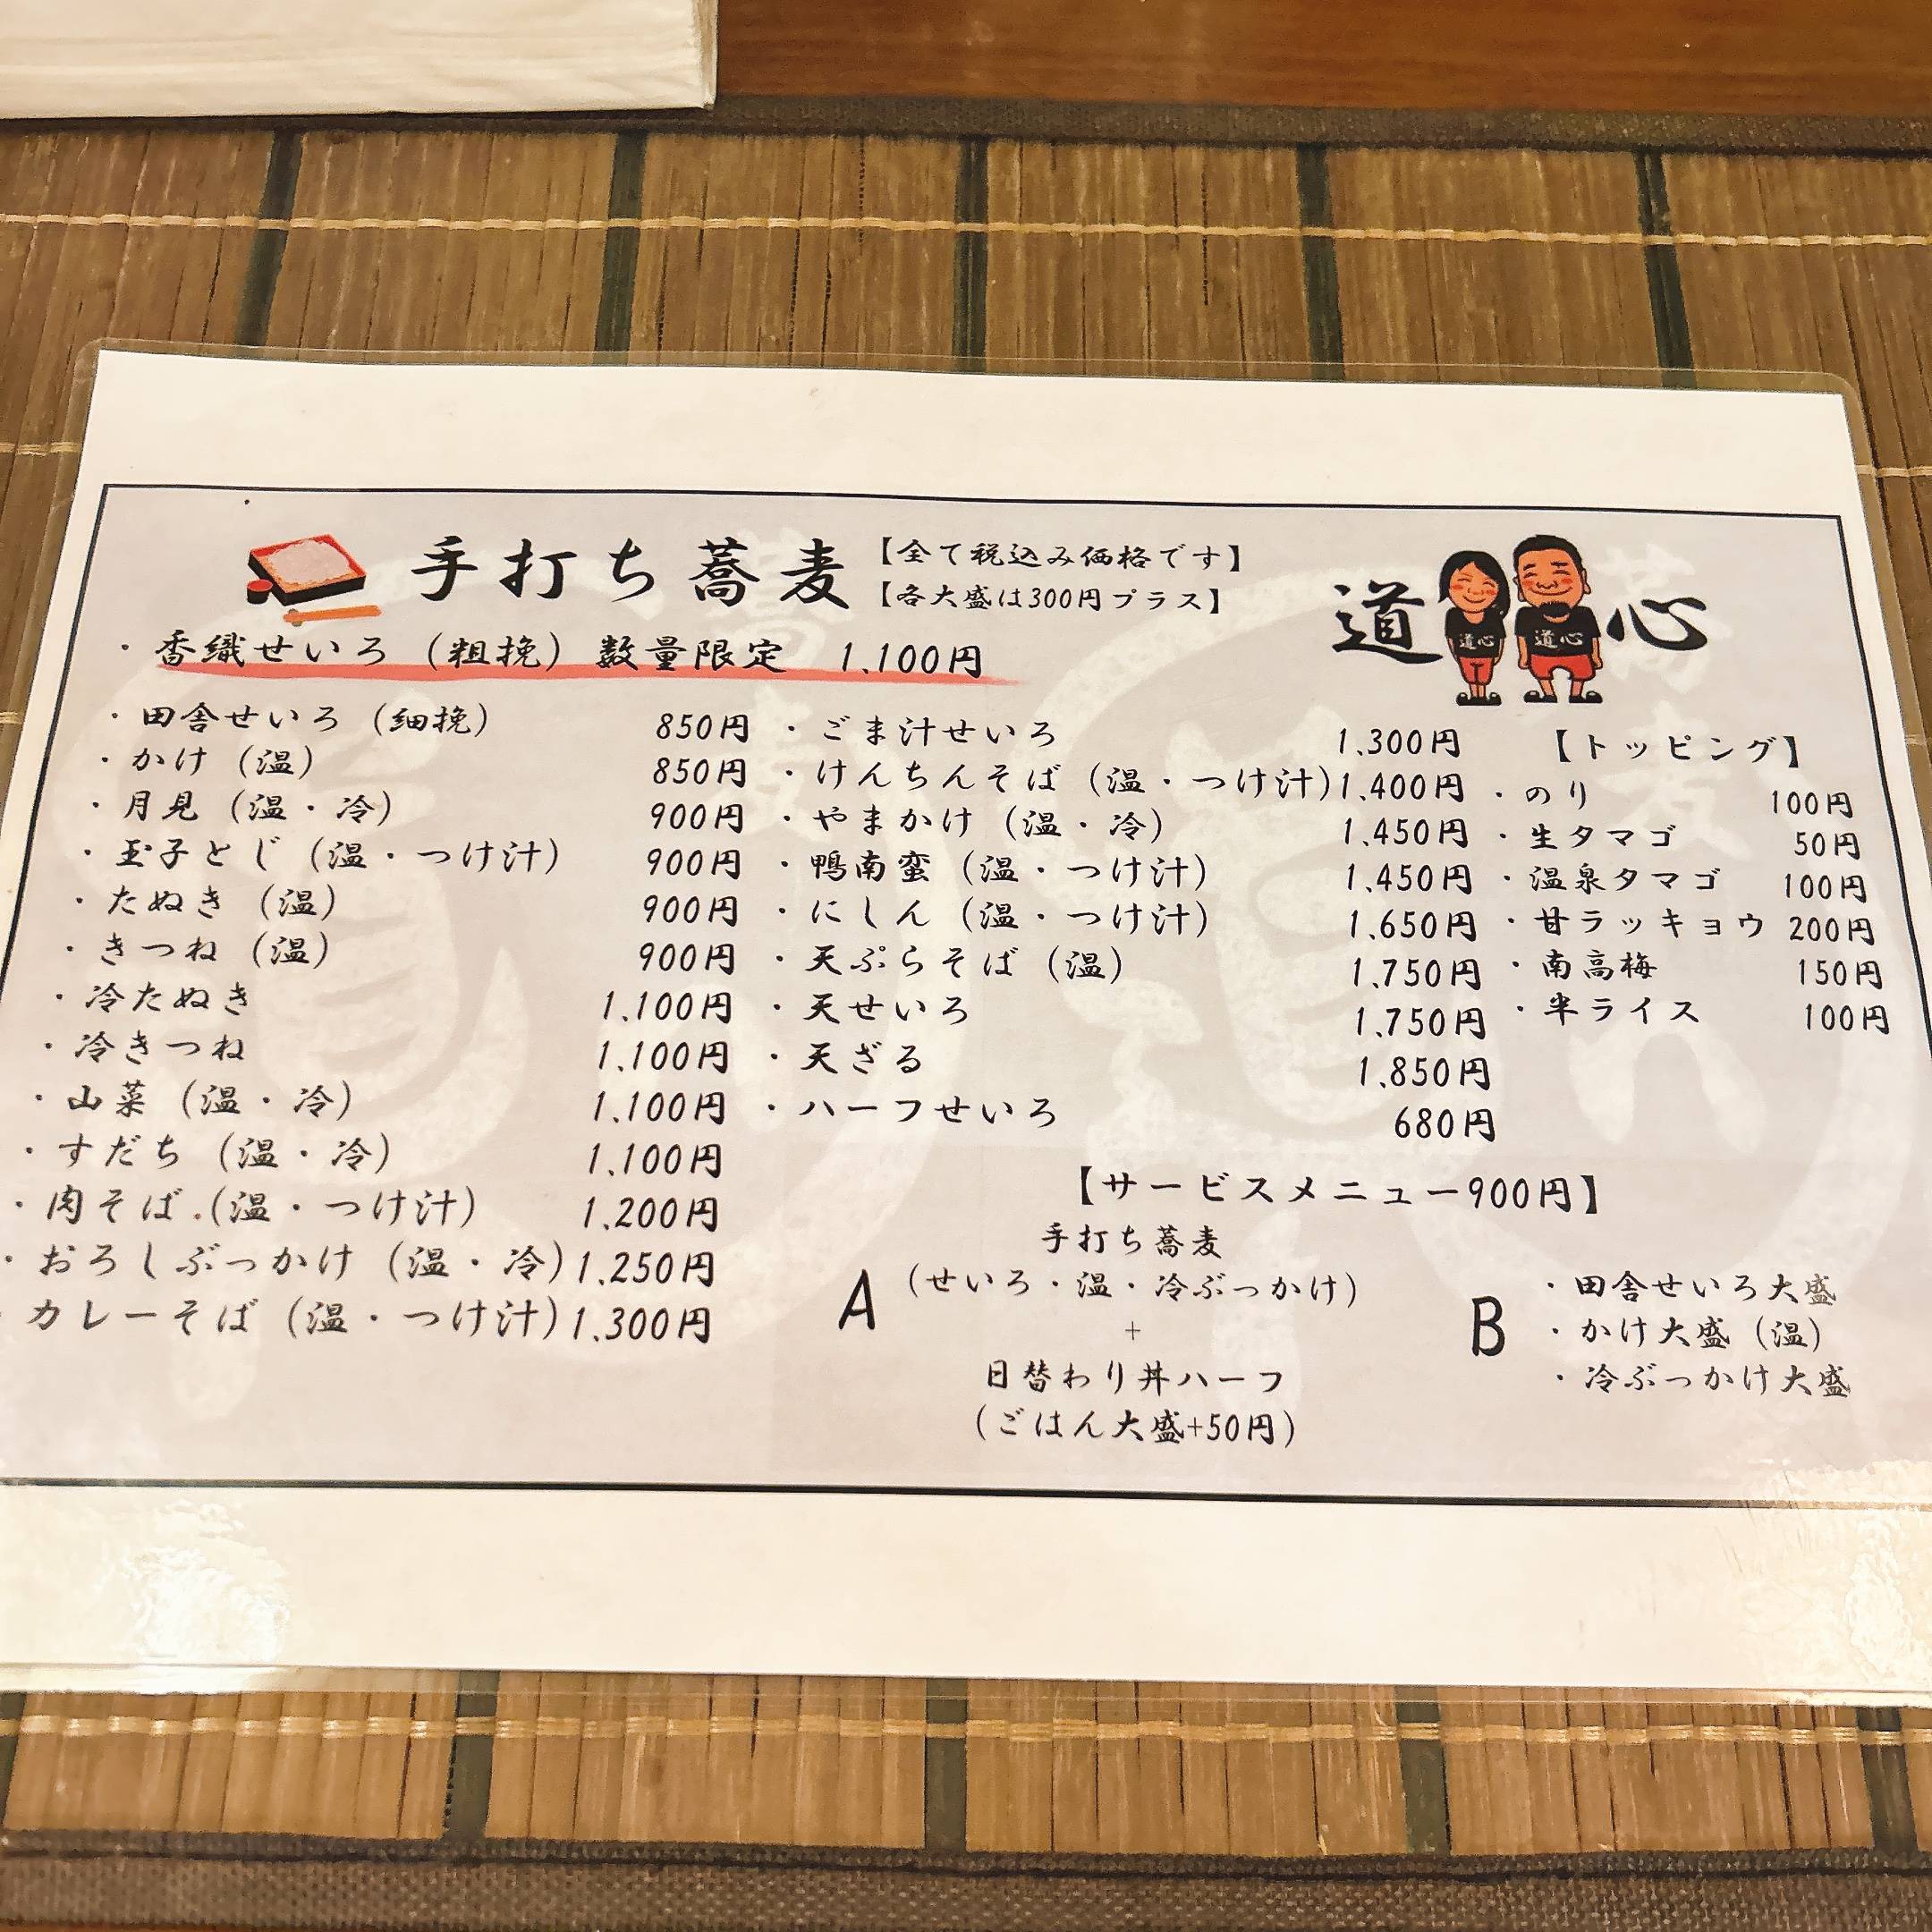 手打ち蕎麦
【全て税込み価格です】
【各大盛は300円プラス】
道心
道心
道心
・香織せいろ（粗挽）数量限定 1,100円
・田舎せいろ（細挽） 850円
・かけ（温） 850円
・月見（温・冷） 900円
・玉子とじ（温・つけ汁） 900円
・たぬき（温） 900円
・きつね（温） 900円
・冷たぬき 1,100円
・冷きつね 1,100円
・山菜（温・冷） 1,100円
・すだち（温・冷） 1,100円
・肉そば（温・つけ汁） 1,200円
・おろしぶっかけ（温・冷） 1,250円
・カレーそば（温・つけ汁） 1,300円
・ごま汁せいろ 1,300円
・けんちんそば（温・つけ汁） 1,400円
・やまかけ（温・冷） 1,450円
・鴨南蛮（温・つけ汁） 1,450円
・にしん（温・つけ汁） 1,650円
・天ぷらそば（温） 1,750円
・天せいろ 1,750円
・天ざる 1,850円
・ハーフせいろ 680円
【トッピング】
・のり 100円
・生タマゴ 50円
・温泉タマゴ 100円
・甘ラッキョウ 200円
・南高梅 150円
・半ライス 100円
【サービスメニュー900円】
A
手打ち蕎麦
（せいろ・温・冷ぶっかけ）
+
日替わり丼ハーフ
（ごはん大盛+50円）
B
・田舎せいろ大盛
・かけ大盛（温）
・冷ぶっかけ大盛